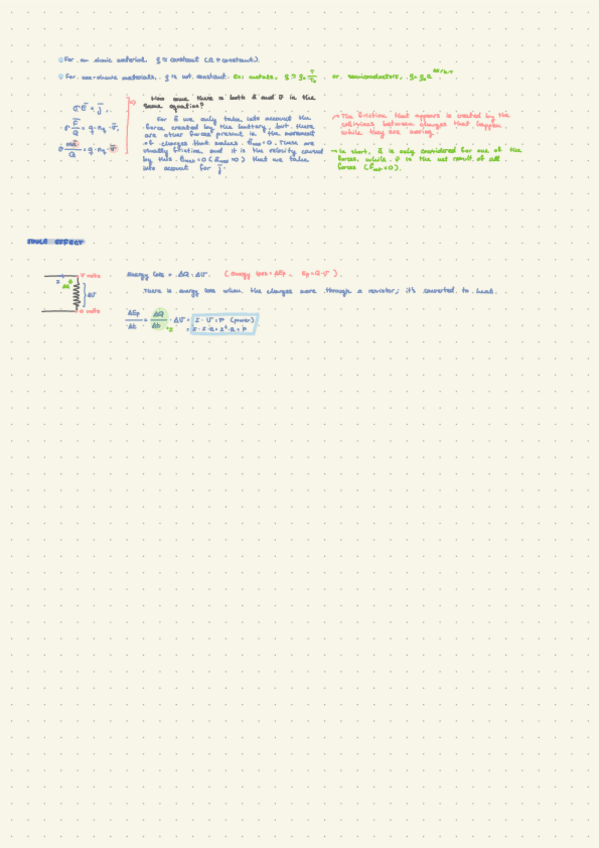 For an ohmic material, ρ is constant (R is constant).
For non-ohmic materials, ρ is not constant. Ex: metals, ρ = ρ₀ T/T₀ or semiconductors, ρ = ρ₀ e
σ E = j
How come there is both a and v in the same equation?
σ · E/Q = q · n_q · v,
For E we only take into account the force created by the battery, but there are other forces present in the movement of charges that makes = 0. These are usually friction, and it is the velocity caused by this = 0 that we take into account for j.
σ /Q = q · n_q · v
→ The friction that appears is created by the collisions between charges that happen while they are moving.
→ In short, is only considered for one of the forces, while v is the net result of all forces ( = 0).
JOULE EFFECT
V volts
I
ΔV
0 volts
Energy loss = ΔQ · ΔV. (Energy loss = ΔEp, Ep = Q · V).
There is energy loss when the charges move through a resistor; it's converted to heat.
ΔEp/Δt = ΔQ/Δt · ΔV = I · V = P (power)
= I · I · R = I² · R = P